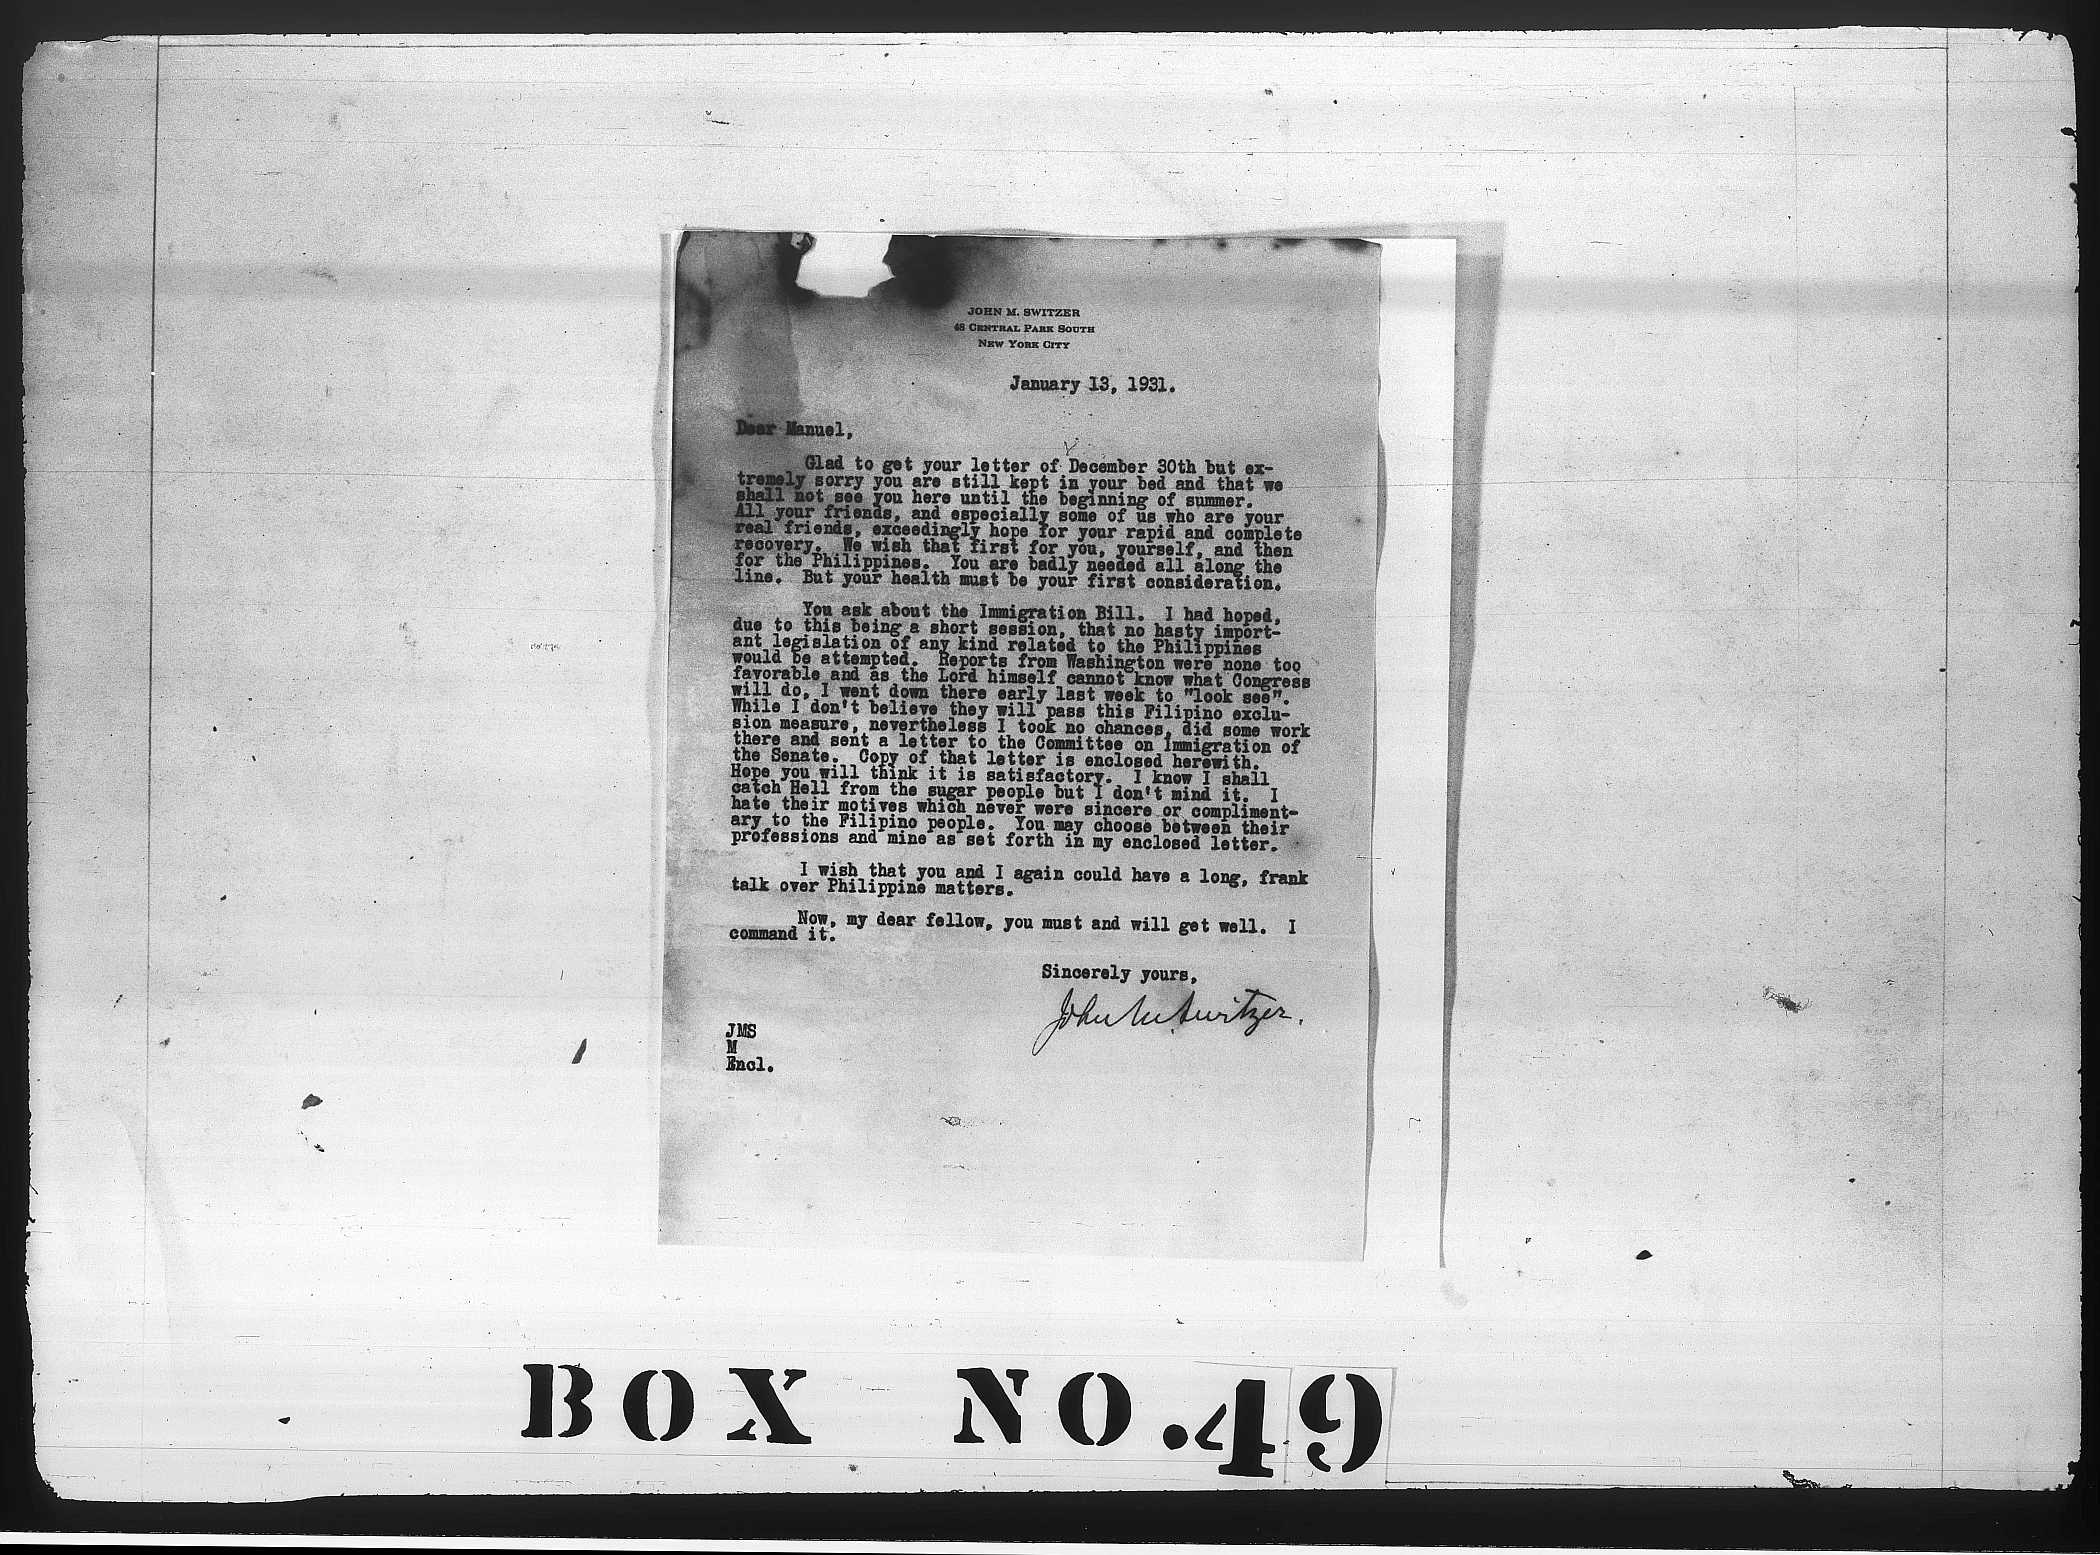 JOHN M. SWITZER
48 CENTRAL PARK SOUTH
NEW YORK CITY
January 13, 1931.
Dear Manuel,
Glad to get your letter of December 30th but ex-
tremely sorry you are still kept in your bed and that we
shall not see you here until the beginning of summer.
All your friends, and especially some of us who are your
real friends, exceedingly hope for your rapid and complete
recovery. We wish that first for you, yourself, and then
for the Philippines. You are badly needed all along the
line. But your health must be your first consideration.
You ask about the Immigration Bill. I had hoped,
due to this being a short session, that no hasty import-
ant legislation of any kind related to the Philippines
would be attempted. Reports from Washington were none too
favorable and as the Lord himself cannot know what Congress
will do, I went down there early last week to "look see".
While I don't believe they will pass this Filipino exclu-
sion measure, nevertheless I took no chances, did some work
there and sent a letter to the Committee on Immigration of
the Senate. Copy of that letter is enclosed herewith.
Hope you will think it is satisfactory. I know I shall
catch Hell from the sugar people but I don't mind it. I
hate their motives which never were sincere or compliment-
ary to the Filipino people. You may choose between their
professions and mine as set forth in my enclosed letter.
I wish that you and I again could have a long, frank
talk over Philippine matters.
Now, my dear fellow, you must and will get well. I
command it.
Sincerely yours,
John M. Switzer.
JMS
M
Encl.
BOX NO. 49